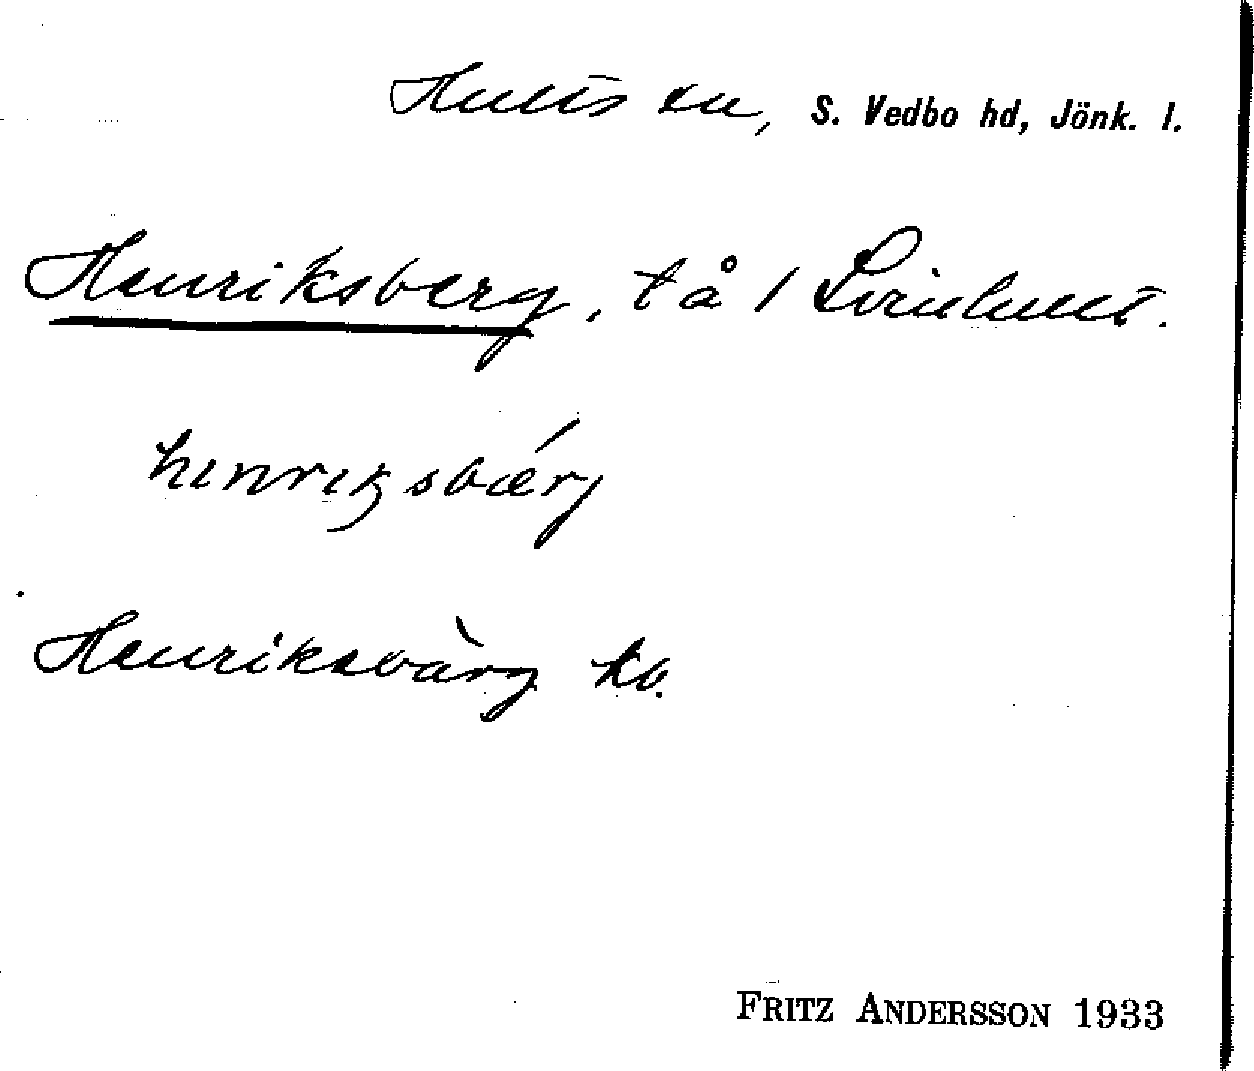 Hults sn, S. Vedbo hd, Jönk. l.
Henriksberg, tå / Lövhult.
hinriksbærj
Henriksbärg kb.
FRITZ ANDERSSON 1933